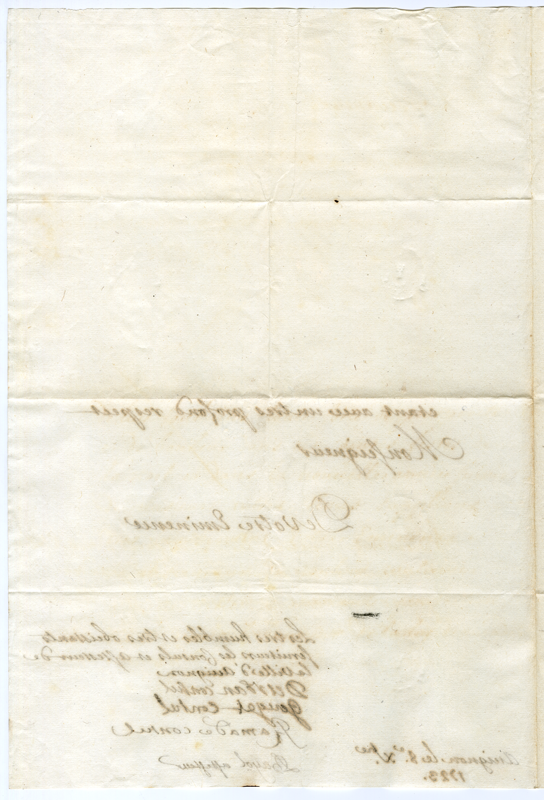 etant avec un tres profond respect
Monseigneur
De Votre Eminence
Les tres humbles et tres obeissants
serviteurs les Consuls et assesseur de
la Ville d'avignon
consul
gouget consul
Ramade consul
assesseur
Avignon le 8e Xbre
1723.